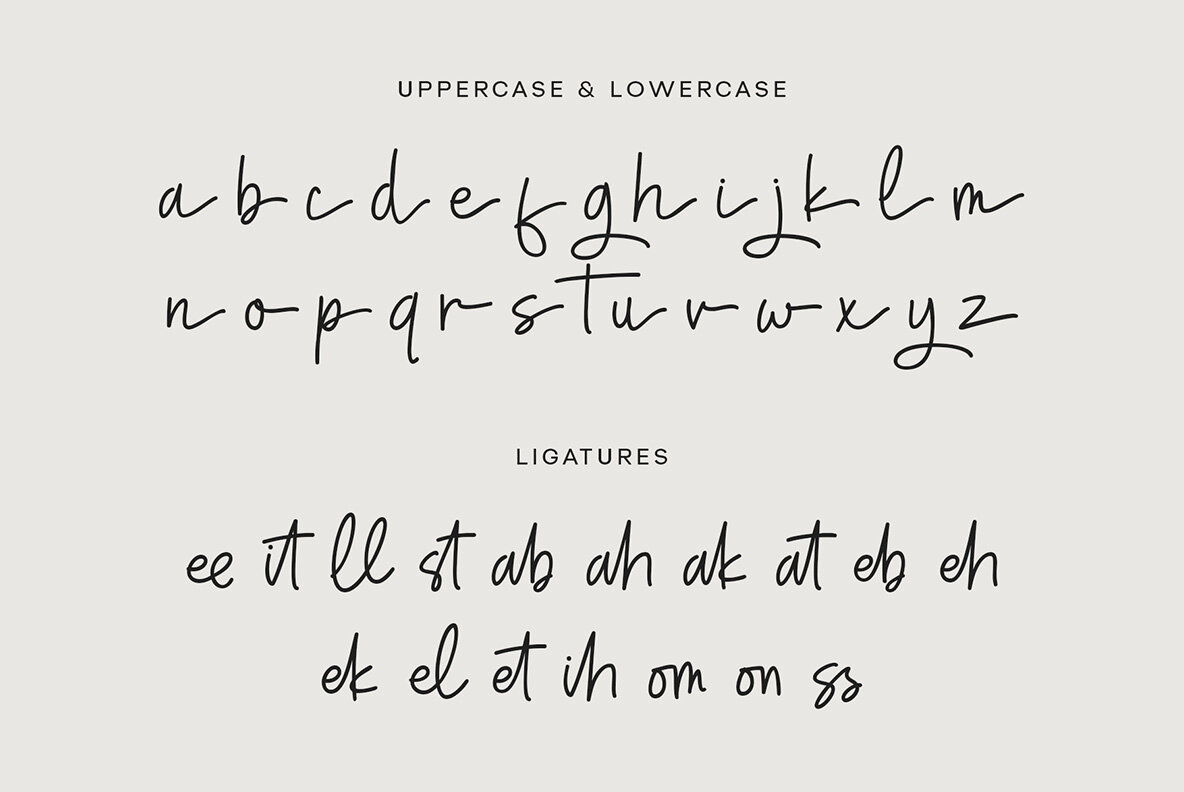 UPPERCASE & LOWERCASE
a b c d e f g h i j k l m
n o p q r s t u v w x y z
LIGATURES
ee it ll st ab ah ak at eb eh
ek el et ih om on ss